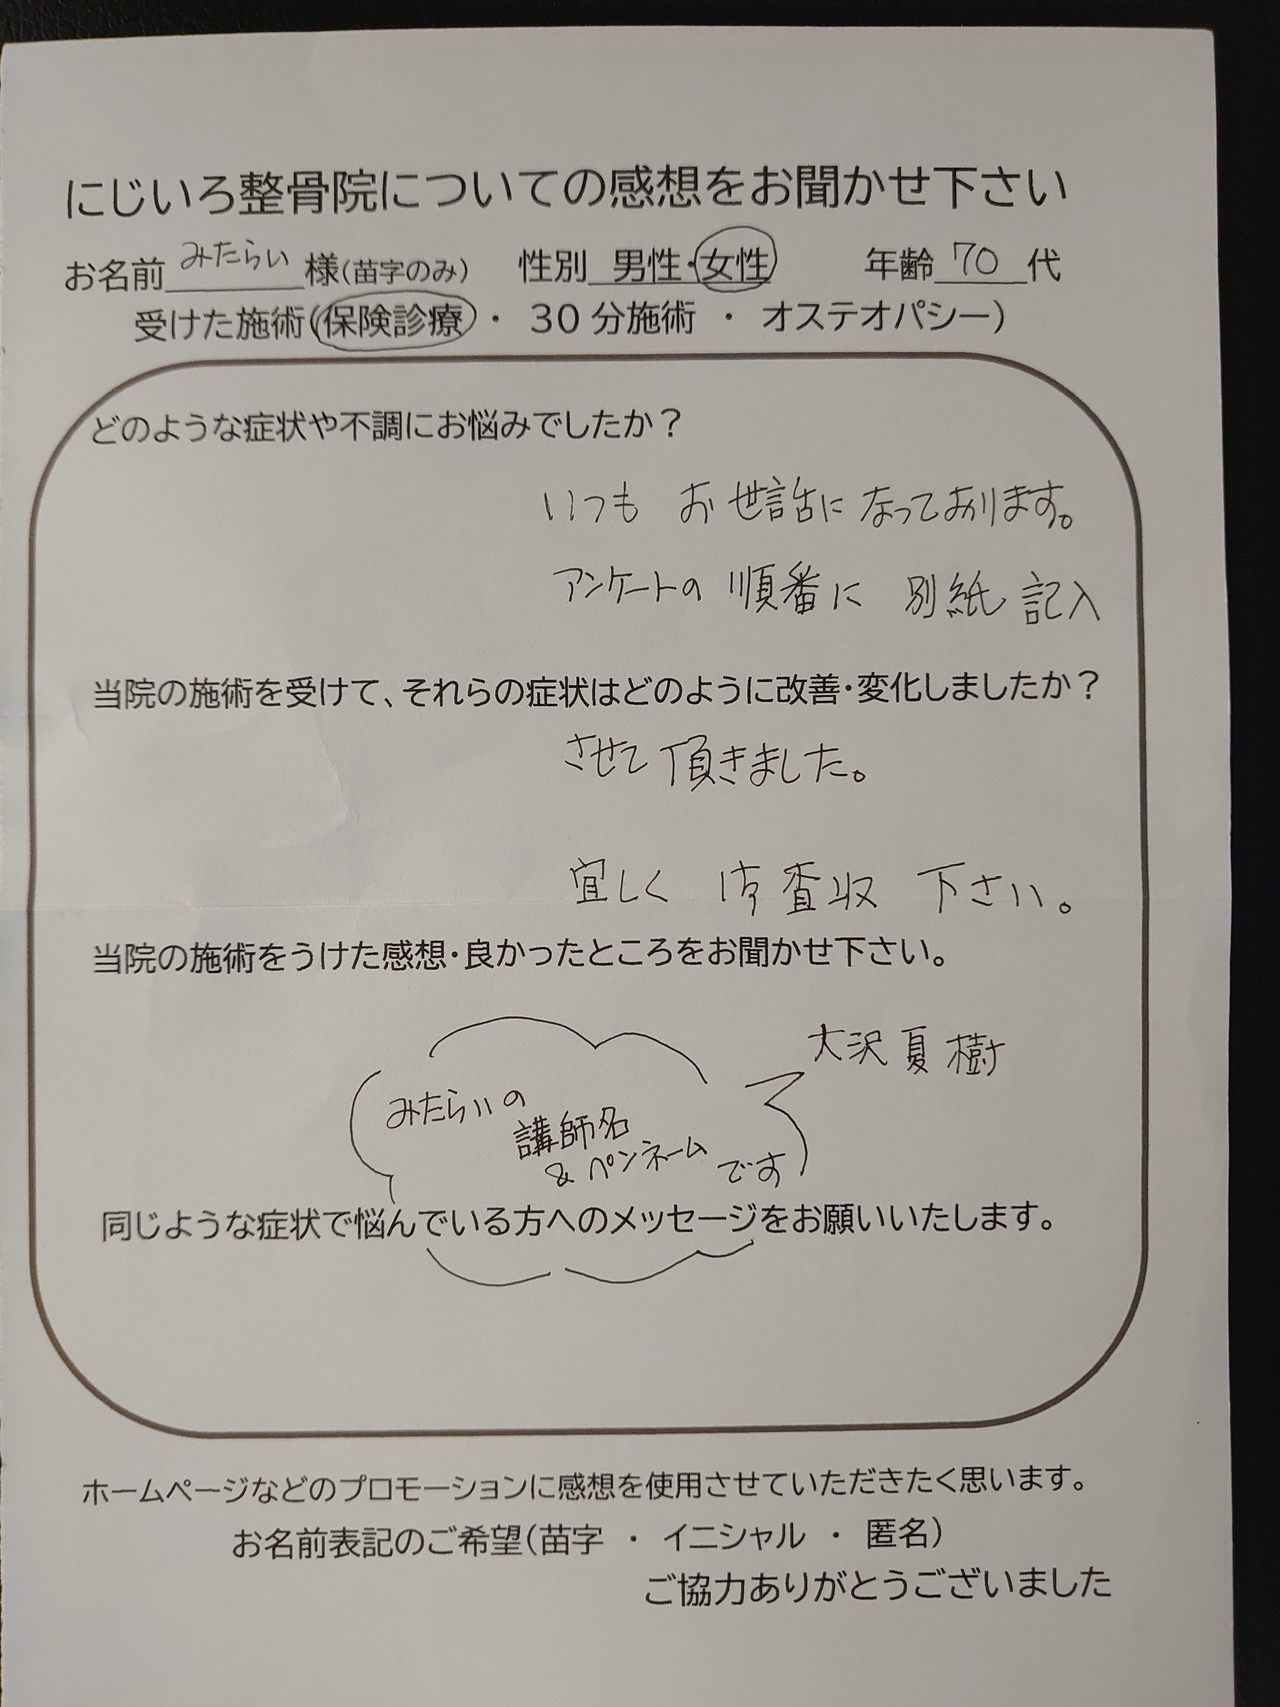 にじいろ整骨院についての感想をお聞かせ下さい
お名前 みたらい 様(苗字のみ) 性別 男性・女性 年齢 70 代
受けた施術(保険診療 ・ 30分施術 ・ オステオパシー)
どのような症状や不調にお悩みでしたか？
いつも お世話になっております。
アンケートの 順番に 別紙 記入
当院の施術を受けて、それらの症状はどのように改善・変化しましたか？
させて 頂きました。
宜しく 査収 下さい。
当院の施術をうけた感想・良かったところをお聞かせ下さい。
大沢夏樹
みたらいの
講師名
& ペンネーム です
同じような症状で悩んでいる方へのメッセージをお願いいたします。
ホームページなどのプロモーションに感想を使用させていただきたく思います。
お名前表記のご希望(苗字 ・ イニシャル ・ 匿名)
ご協力ありがとうございました